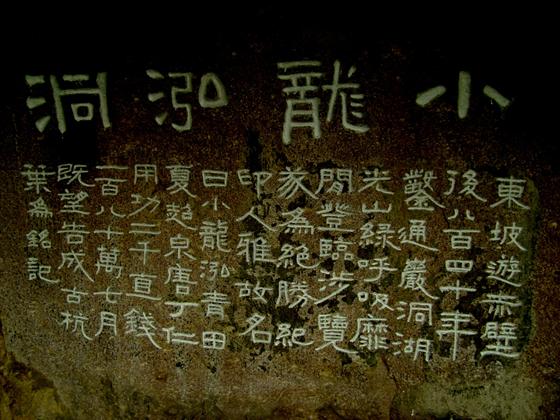 小龍泓洞
東坡遊赤壁
後八百四十年
鑿通巖洞湖
光山綠呼吸靡
閒登臨涉覽
㒸為絕勝紀
印人雅故名
曰小龍泓青田
夏超泉唐丁仁
用功二千直錢
二百八十萬七月
既望告成古杭
葉為銘記